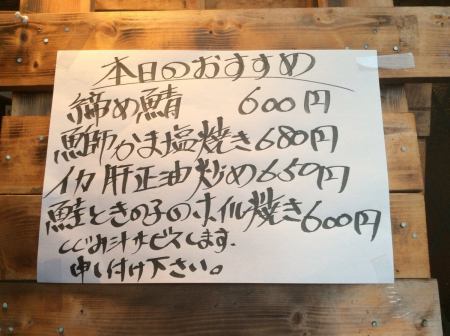 本日のおすすめ
締め鯖 600円
鰤かま塩焼き 680円
イカ肝正油炒め 650円
鮭ときの子のホイル焼き 600円
しじみ汁サービスします.
申し付け下さい。